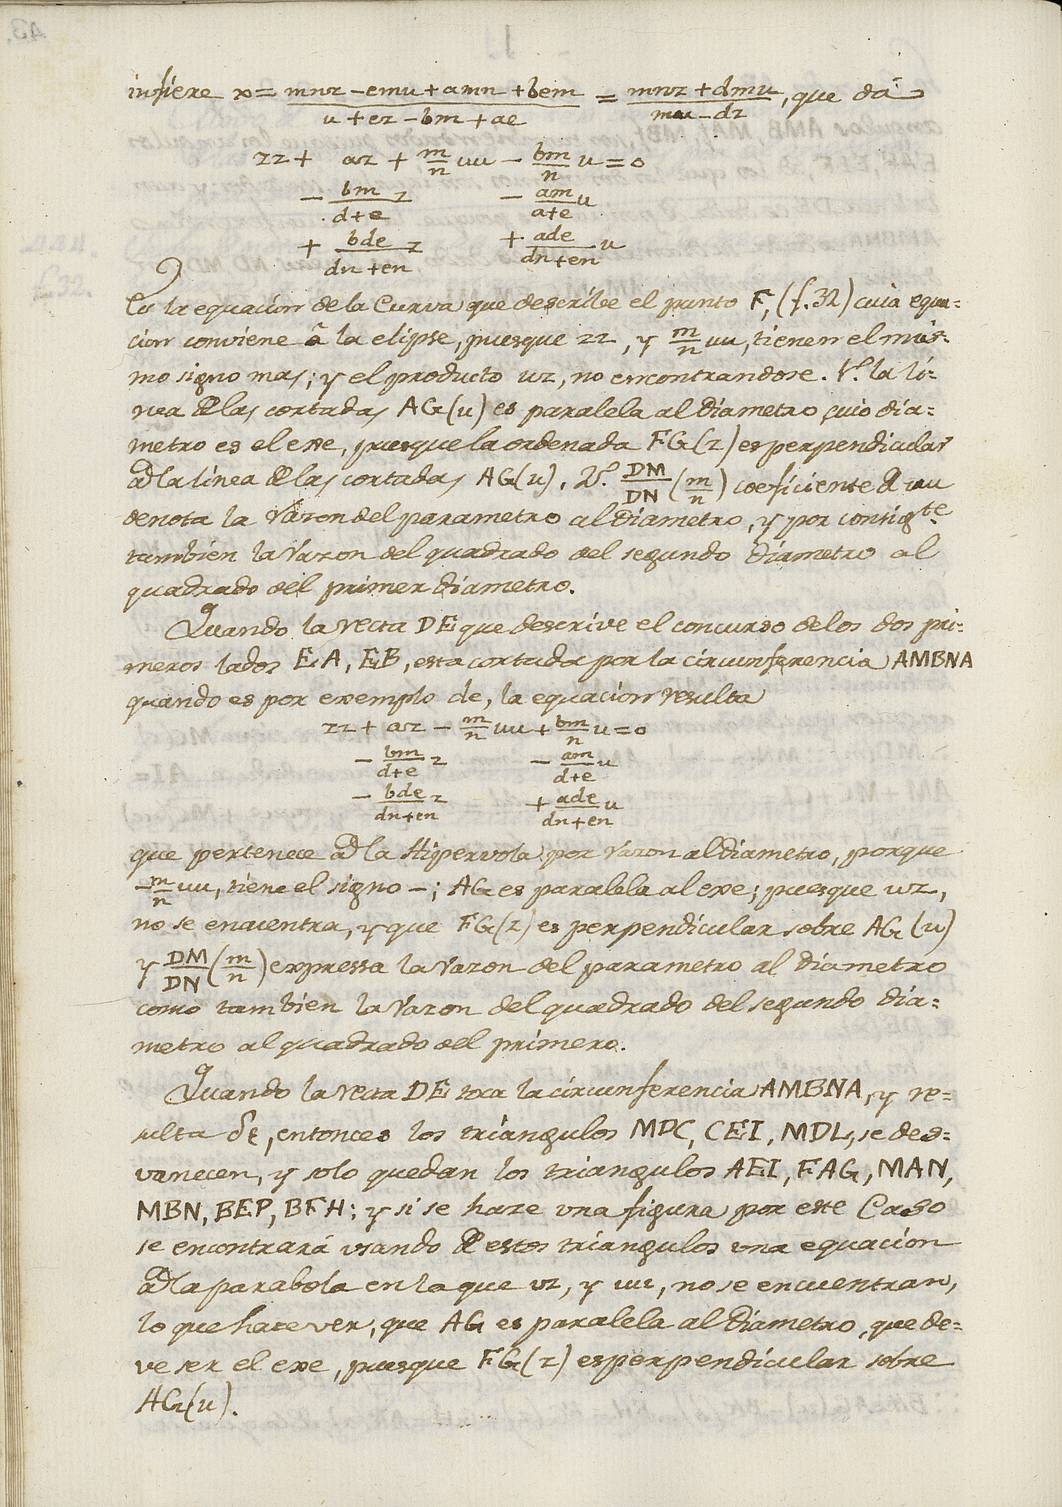 infiere x = (mnz − emu + amn + bem)/(u + ez − bm + ae) = (mnz + dmu)/(mu − dz), que dâ
zz + az + m/n uu − bm/n u = 0
− bm/(d+e) z − am/(a+e) u
+ bde/(dn+en) z + ade/(dn+en) u
Es la equacion de la Curva que describe el punto F, (f. 32) cuia equa=
cion conviene â la elipse, puesque zz, y m/n uu, tienen el mis=
mo signo mas; y el producto uz, no encontrandose. 1.º la lí=
nea de las cortadas AG(u) es paralela al diametro cuio día=
metro es el exe, puesque la ordenada FG(z) es perpendicular
a la línea de las cortadas AG(u). 2.º DM/DN (m/n) coeficiente de uu
denota la razon del parametro al diametro, y por consigte
tambien la razon del quadrado del segundo díametro al
quadrado del primer diametro.
Quando la recta DE que descrive el concurso de los dos pri=
meros lados EA, EB, esta cortada por la circunferencia AMBNA
quando es por exemplo de, la equacion resulta
zz + az − m/n uu + bm/n u = 0
− bm/(d+e) z − am/(d+e) u
− bde/(dn+en) z + ade/(dn+en) u
que pertenece a la Hipervola por razon al diametro, porque
−m/n uu, tiene el signo −; AG es paralela al exe; puesque uz,
no se encuentra, y que FG(z) es perpendicular sobre AG(u)
y DM/DN (m/n) expressa la razon del parametro al díametro
como tambien la razon del quadrado del segundo día=
metro al quadrado del primero.
Quando la recta DE toca la circunferencia AMBNA, y re=
sulta δε, entonces los triangulos MDC, CEI, MDL, se des=
vanecen, y solo quedan los triangulos AEI, FAG, MAN,
MBN, BEP, BFH; y si se haze una figura por este Caso
se encontrará usando de estos triangulos una equacion
a la parabola en la que uz, y uu, no se encuentran,
lo que hace ver, que AG es paralela al diametro, que de=
ve ser el exe, puesque FG(z) es perpendicular sobre
AG(u).